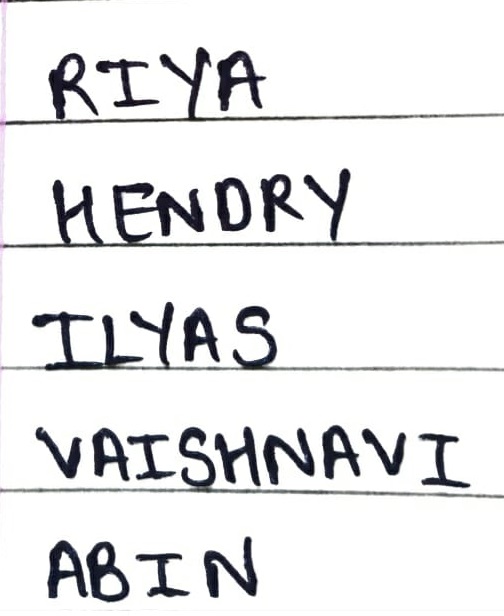 RIYA
HENDRY
ILYAS
VAISHNAVI
ABIN